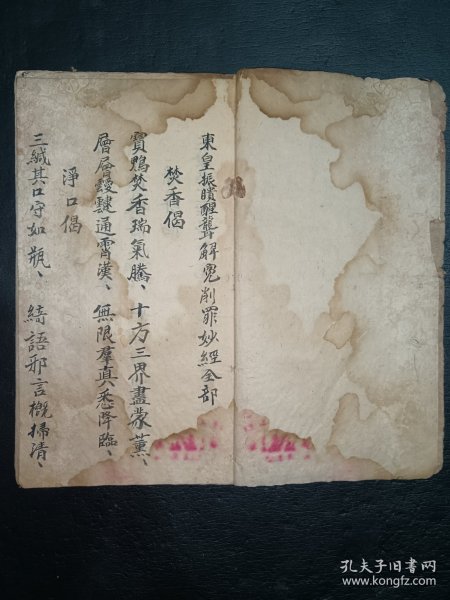 東皇振聵醒聾解冤削罪妙經全部
焚香偈
寶鴨焚香瑞氣騰、十方三界盡蒙薰、
層層靉靆通霄漢、無限羣真悉降臨、
淨口偈
三緘其口守如瓶、綺語邪言概掃清、
孔夫子旧书网
www.kongfz.com